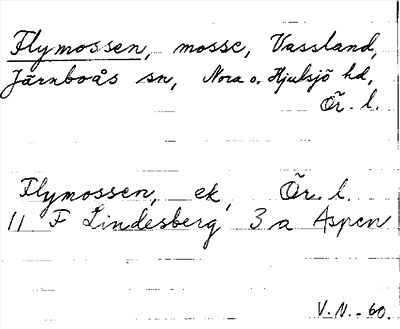 Flymossen, mosse, Vassland,
Järnboås sn, Nora o. Hjulsjö hd,
Ör. l.
Flymossen, ek, Ör. l.
11 F Lindesberg 3 a Aspen
V.N. - 60.